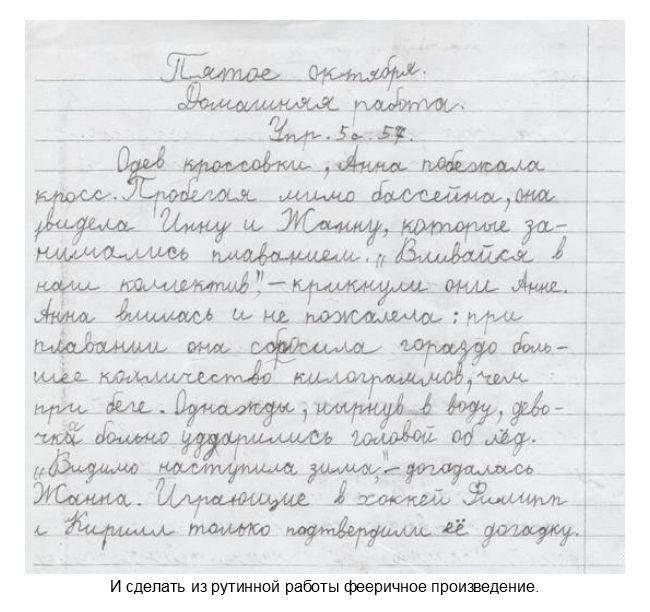 Пятое октября.
Домашняя работа.
Упр. 5 с. 57.
Одев кроссовки, Анна побежала
кросс. Пробегая мимо бассейна, она
увидела Инну и Жанну, которые за-
нимались плаванием. „Вливайся в
наш коллектив", – крикнули они Анне.
Анна влилась и не пожалела: при
плавании она сбросила гораздо боль-
шее колличество килограммов, чем
при беге. Однажды, нырнув в воду, дево-
чки больно уддарились головой об лёд.
„Видимо наступила зима," – догадалась
Жанна. Играющие в хоккей Филипп
и Кирилл только подтвердили её догадку.
И сделать из рутинной работы фееричное произведение.